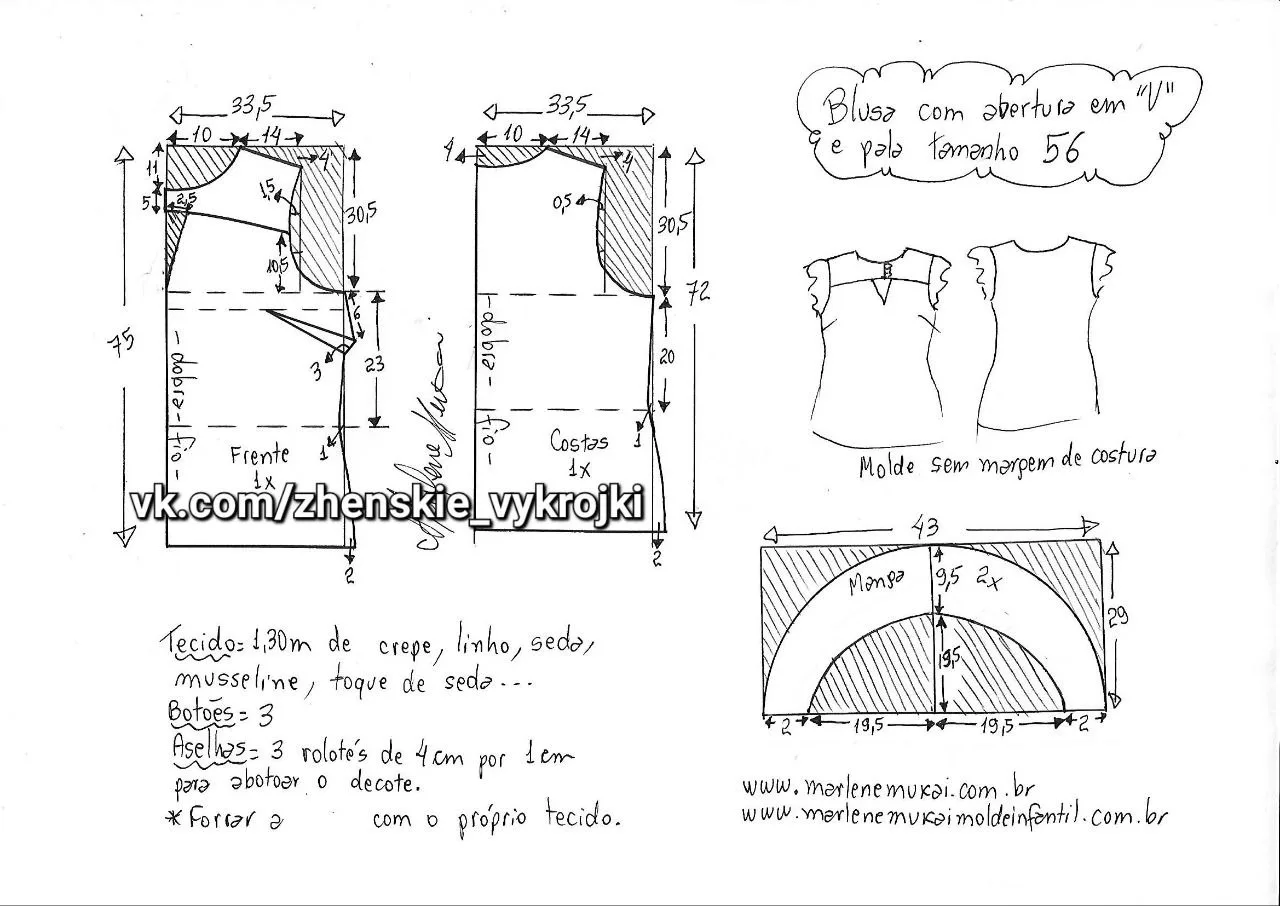 Blusa com abertura em "V"
e pala tamanho 56
33,5
10
14
4
11
5
2,5
1,5
30,5
10,5
6
3
23
75
1
2
- fio - dobra -
Frente
1x
33,5
10
14
4
4
0,5
30,5
72
20
1
2
- fio - dobra -
Costas
1x
vk.com/zhenskie_vykrojki
Molde sem margem de costura
43
Manga
9,5
2x
29
19,5
2
19,5
19,5
2
Tecido= 1,30m de crepe, linho, seda,
musseline, toque de seda...
Botões= 3
Aselhas= 3 rolotés de 4cm por 1cm
para abotoar o decote.
*Forrar a com o próprio tecido.
www.marlenemukai.com.br
www.marlenemukaimoldeinfantil.com.br